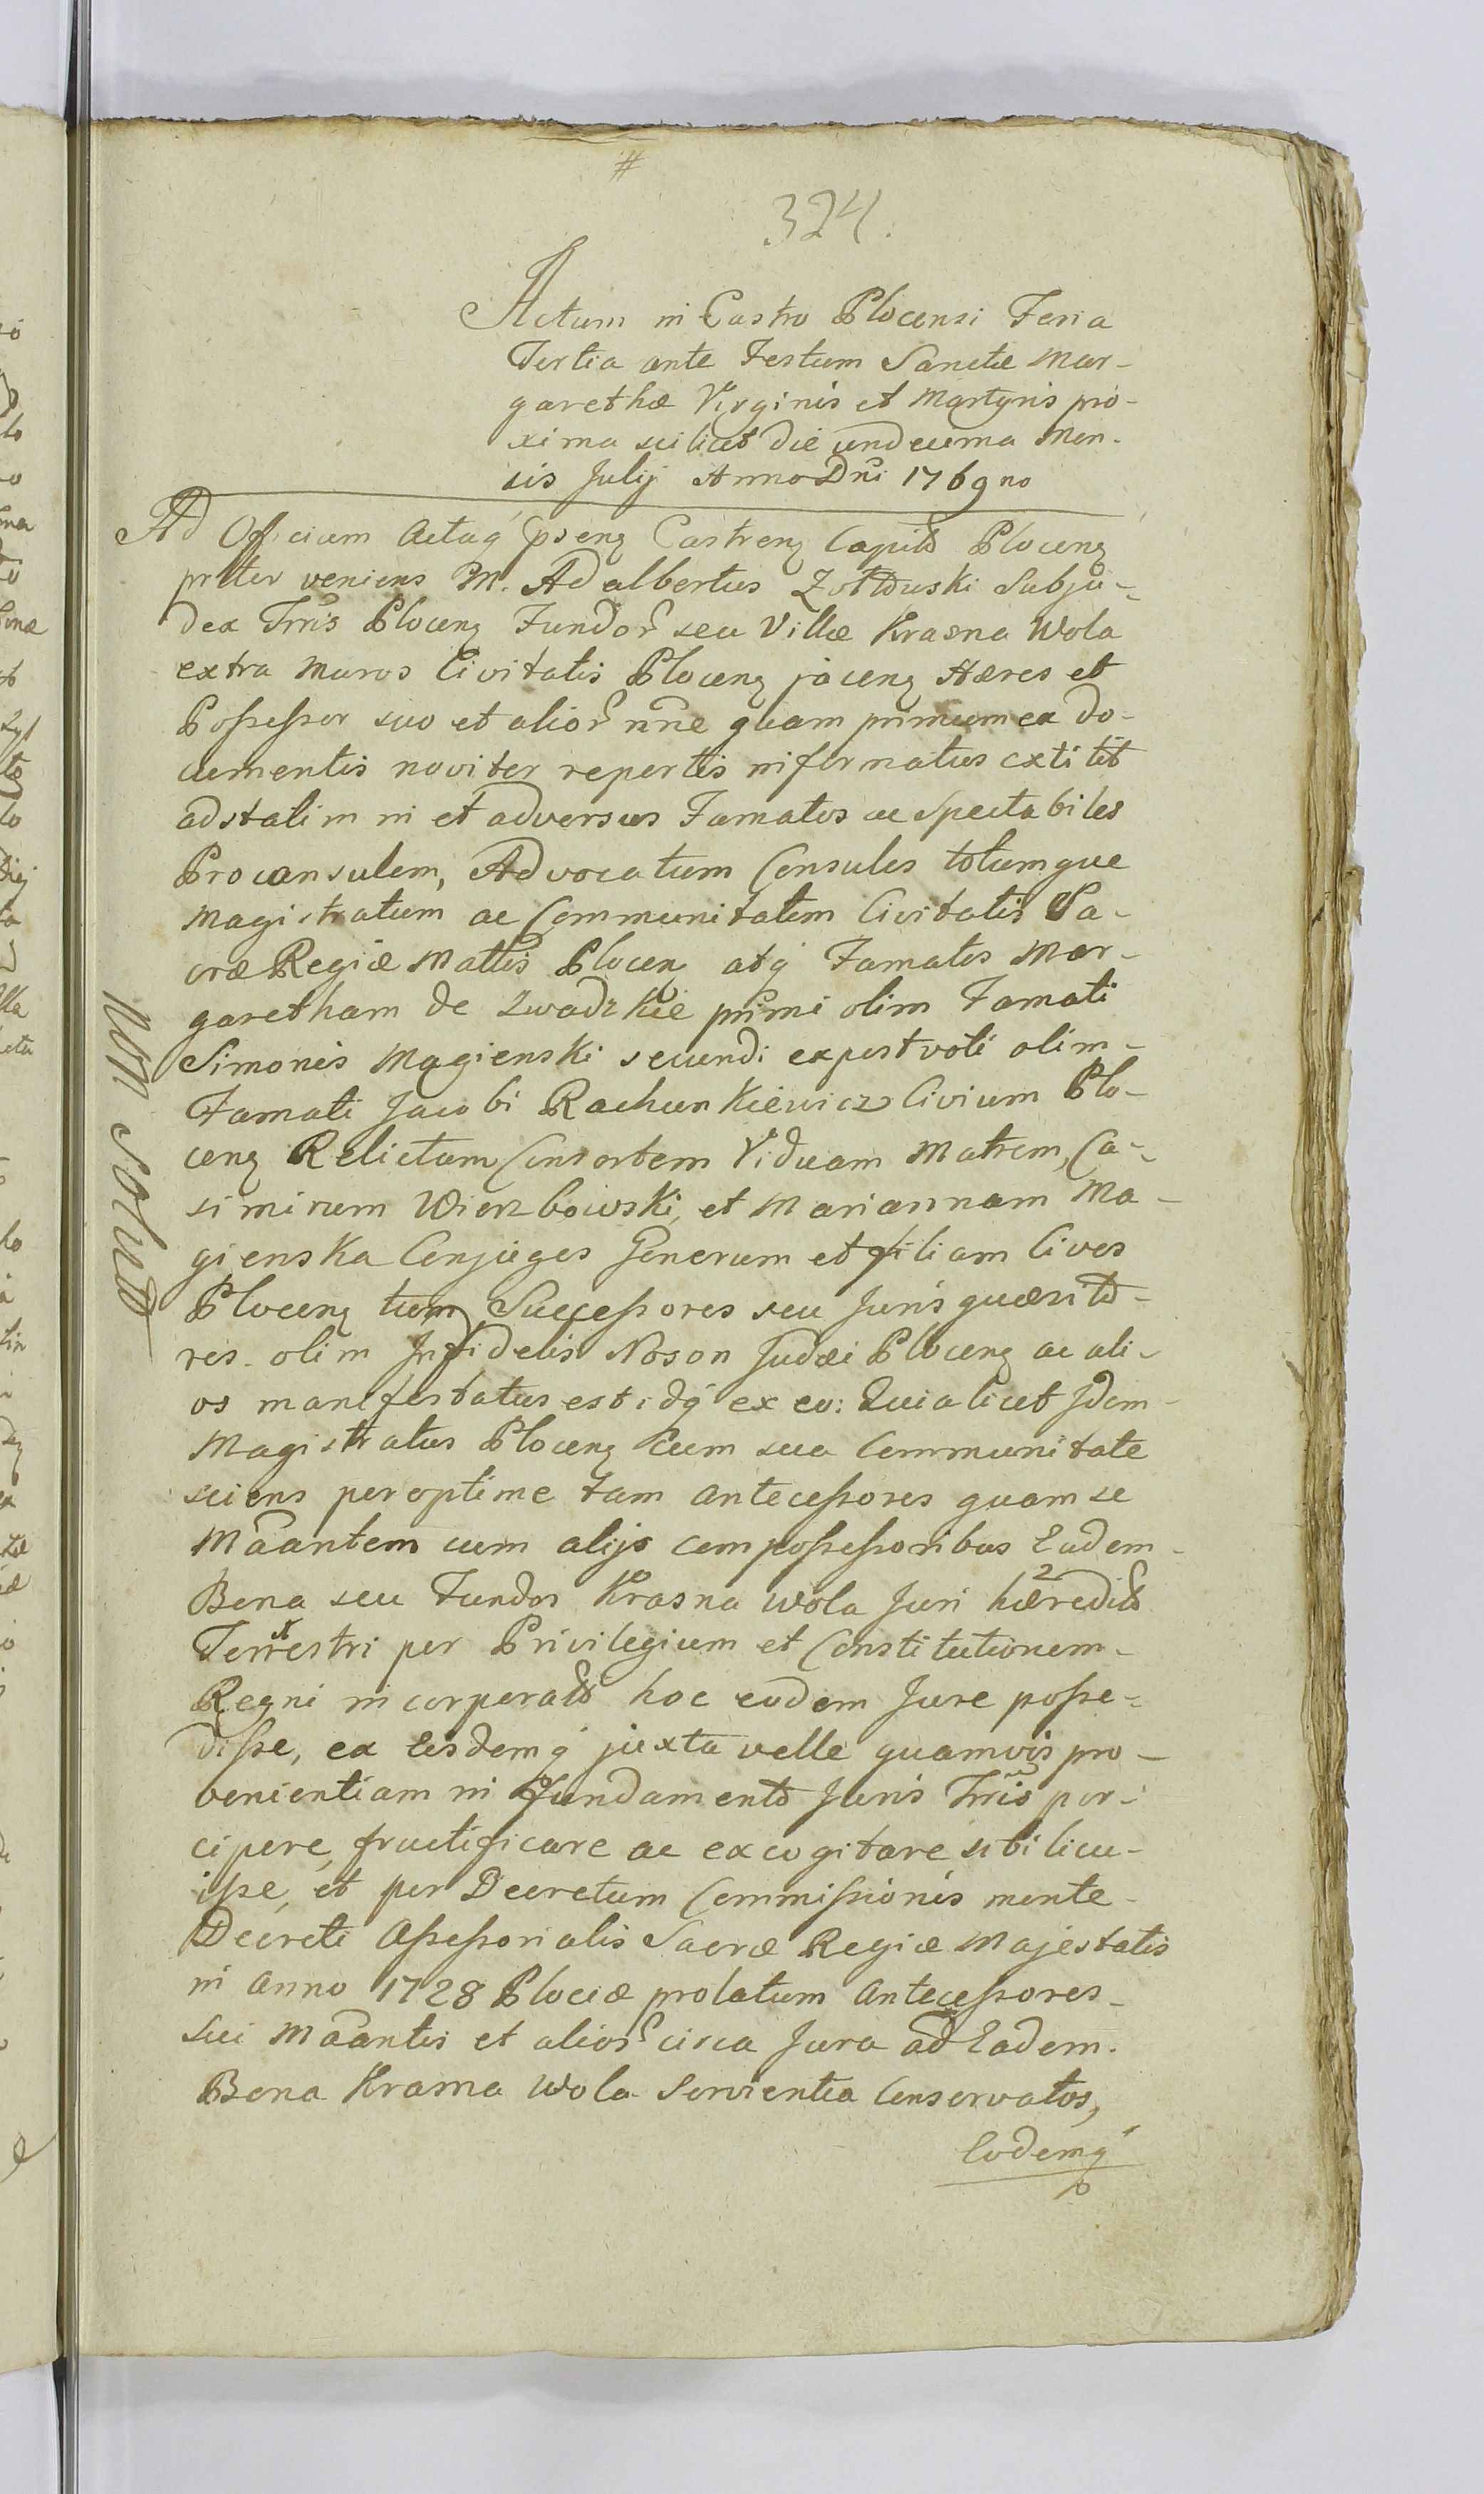 #
324.
Actum in Castro Plocensi Feria
Tertia ante Festum Sanctæ Mar-
garethæ Virginis et Martyris pro-
xima scilicet die undecima Men-
sis Julij Anno Dni 1769no
Ad Officium Actaq pseng Castreng Capitl Ploceng
prlter veniens M. Adalbertus Zołtowski Subju-
dex Trris Ploceng Fundor seu Villæ Krasna Wola
extra muros Civitatis Ploceng jaceng Hæres et
Possessor suo et alior nne quam primum ex do-
cumentis noviter repertis informatus extitit
adstatim in et adversus Famatos ac Spectabiles
Proconsulem, Advocatum Consules totumque
Magistratum ac Communitatem Civitatis Sa-
cræ Regiæ Mattis Ploceng atq Famatos Mar-
garetham de Zwadzkie primi olim Famati
Simonis Magienski secundi expost voti olim-
Famati Jacobi Rachunkiewicz Civium Plo-
ceng Relictam Consortem Viduam Matrem, Ca-
simirum Wierzbowski, et Mariannam Ma-
gienska Conjuges Generum et filiam Cives
Ploceng tum Successores seu Juris quæsito-
res olim Infidelis Noson Judæi Ploceng ac ali-
os manifestatus est idq ex eo: Quia licet Idem
Magistratus Ploceng cum sua Communitate
sciens peroptime tam antecessores quam se
Maantem cum alijs compossessoribus Eadem-
Bona seu Fundos Krasna Wola Juri hæredit
Terrestri per Privilegium et Constitutionem-
Regni incorporat hoc eodem Jure posse-
disse, ex Eisdemq juxta velle quamvis pro-
venientiam in fundamento Juris Trris per-
cipere, fructificare ac excogitare sibi licu-
isse, et per Decretum Commissionis mente-
Decreti Assessorialis Sacræ Regiæ Majestatis
in Anno 1728 Plociæ prolatum Antecessores-
sui Maantis et alios circa Jura ad Eadem-
Bona Krasna Wola Servientia Conservatos,
Eodemq
Non Solud